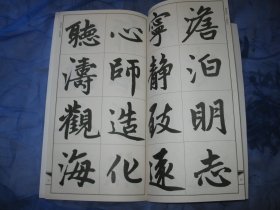 澹泊明志
寧静致遠
心師造化
聽濤觀海